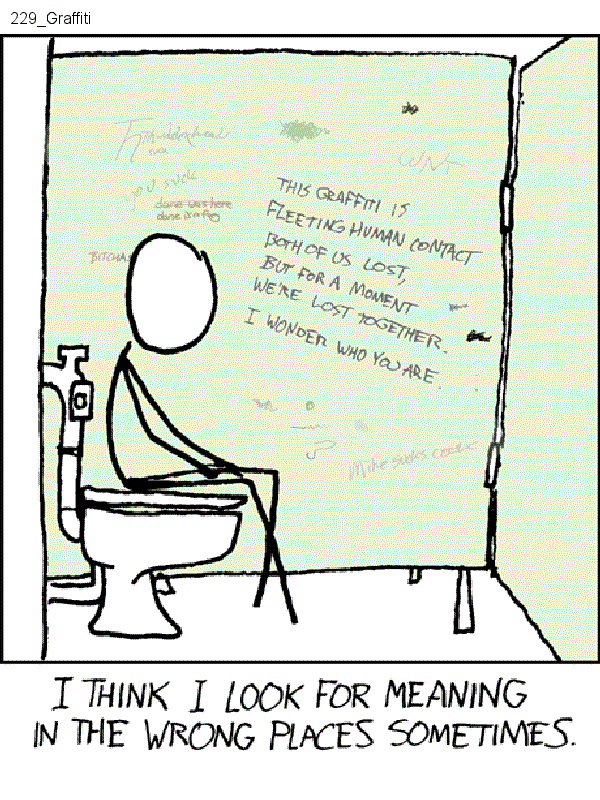 229_Graffiti
you suck
dana was here
THIS GRAFFITI IS
FLEETING HUMAN CONTACT
BOTH OF US LOST,
BUT FOR A MOMENT
WE'RE LOST TOGETHER.
I WONDER WHO YOU ARE
Mike sucks
I THINK I LOOK FOR MEANING
IN THE WRONG PLACES SOMETIMES.